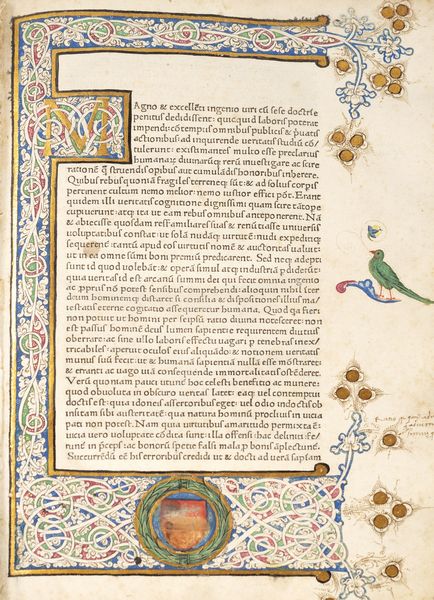 MAgno & excellēti ingenio uiri cū sese doctrīe
penitus dedidissent: quicquid laboris poterat
impendi: cōtemptis omnibus publicis & p̄uatis
actionibus ad inquirende ueritatis studiū cō/
tulerunt: existimantes multo esse preclarius
humanaꝝ diuinarūqꝫ rerū inuestigare ac scire
rationē q̄ struendis opibus aut cumulādis honoribus inherere.
Quibus rebus quoniā fragiles terreneqꝫ sūt: & ad solius corpis
pertinent cultum nemo melior: nemo iustior effici pōt. Erant
quidem illi ueritatis cognitione dignissimi quam scire tātope
cupiuerunt: atqꝫ ita ut eam rebus omnibus anteponerent. Nā
& abiecisse quosdam res familiares suas & renūtiasse uniuersis
uoluptatibus constat: ut solā nudāqꝫ uirtutē: nudi expeditiqꝫ
sequerent᷑: tantū apud eos uirtutis nomē & auctoritas ualuit:
ut in ea omne summi boni premiū predicarent. Sed neqꝫ adepti
sunt id quod uolebāt: & operā simul atqꝫ industriā p̄diderūt:
quia ueritas id est arcanū summi dei qui fecit omnia ingenio
ac ꝓpriis nō potest sensibus comprehendi: alioquin nihil iter
deum hominemqꝫ distaret si consilia & dispositiones illius ma/
iestatis eterne cogitatio assequeretur humana. Quod qa fieri
non potuit ut homini per seipsū ratio diuina notesceret: non
est passus hominē deus lumen sapientie requirentem diutius
oberrare: ac sine ullo laboris effectu uagari p̄ tenebras inex/
tricabiles: aperuit oculos eius aliquādo: & notionem ueritatis
munus suū fecit: ut & humanā sapientiā nullā esse mōstraret:
& erranti ac uago uiā consequende immortalitatis ostēderet.
Verū quoniam pauci utunt᷑ hoc celesti benefitio ac munere:
quod obuoluta in obscuro ueritas latet: eaqꝫ uel contemptui
doctis est: quia idoneis assertoribus eget: uel odio indoctis ob
insitam sibi austeritatē: qua natura hominū procliuis in uicia
pati non potest. Nam quia uirtutibus amaritudo permixta ē:
uicia uero uoluptate cōdita sunt: illa offensi: hac deliniti fe/
runt᷑ in p̄ceps: ac bonorū spetie falsi mala p̄ bonis āplectunt᷑.
Succurrēdū eē his erroribus credidi ut & docti ad uerā sapīam